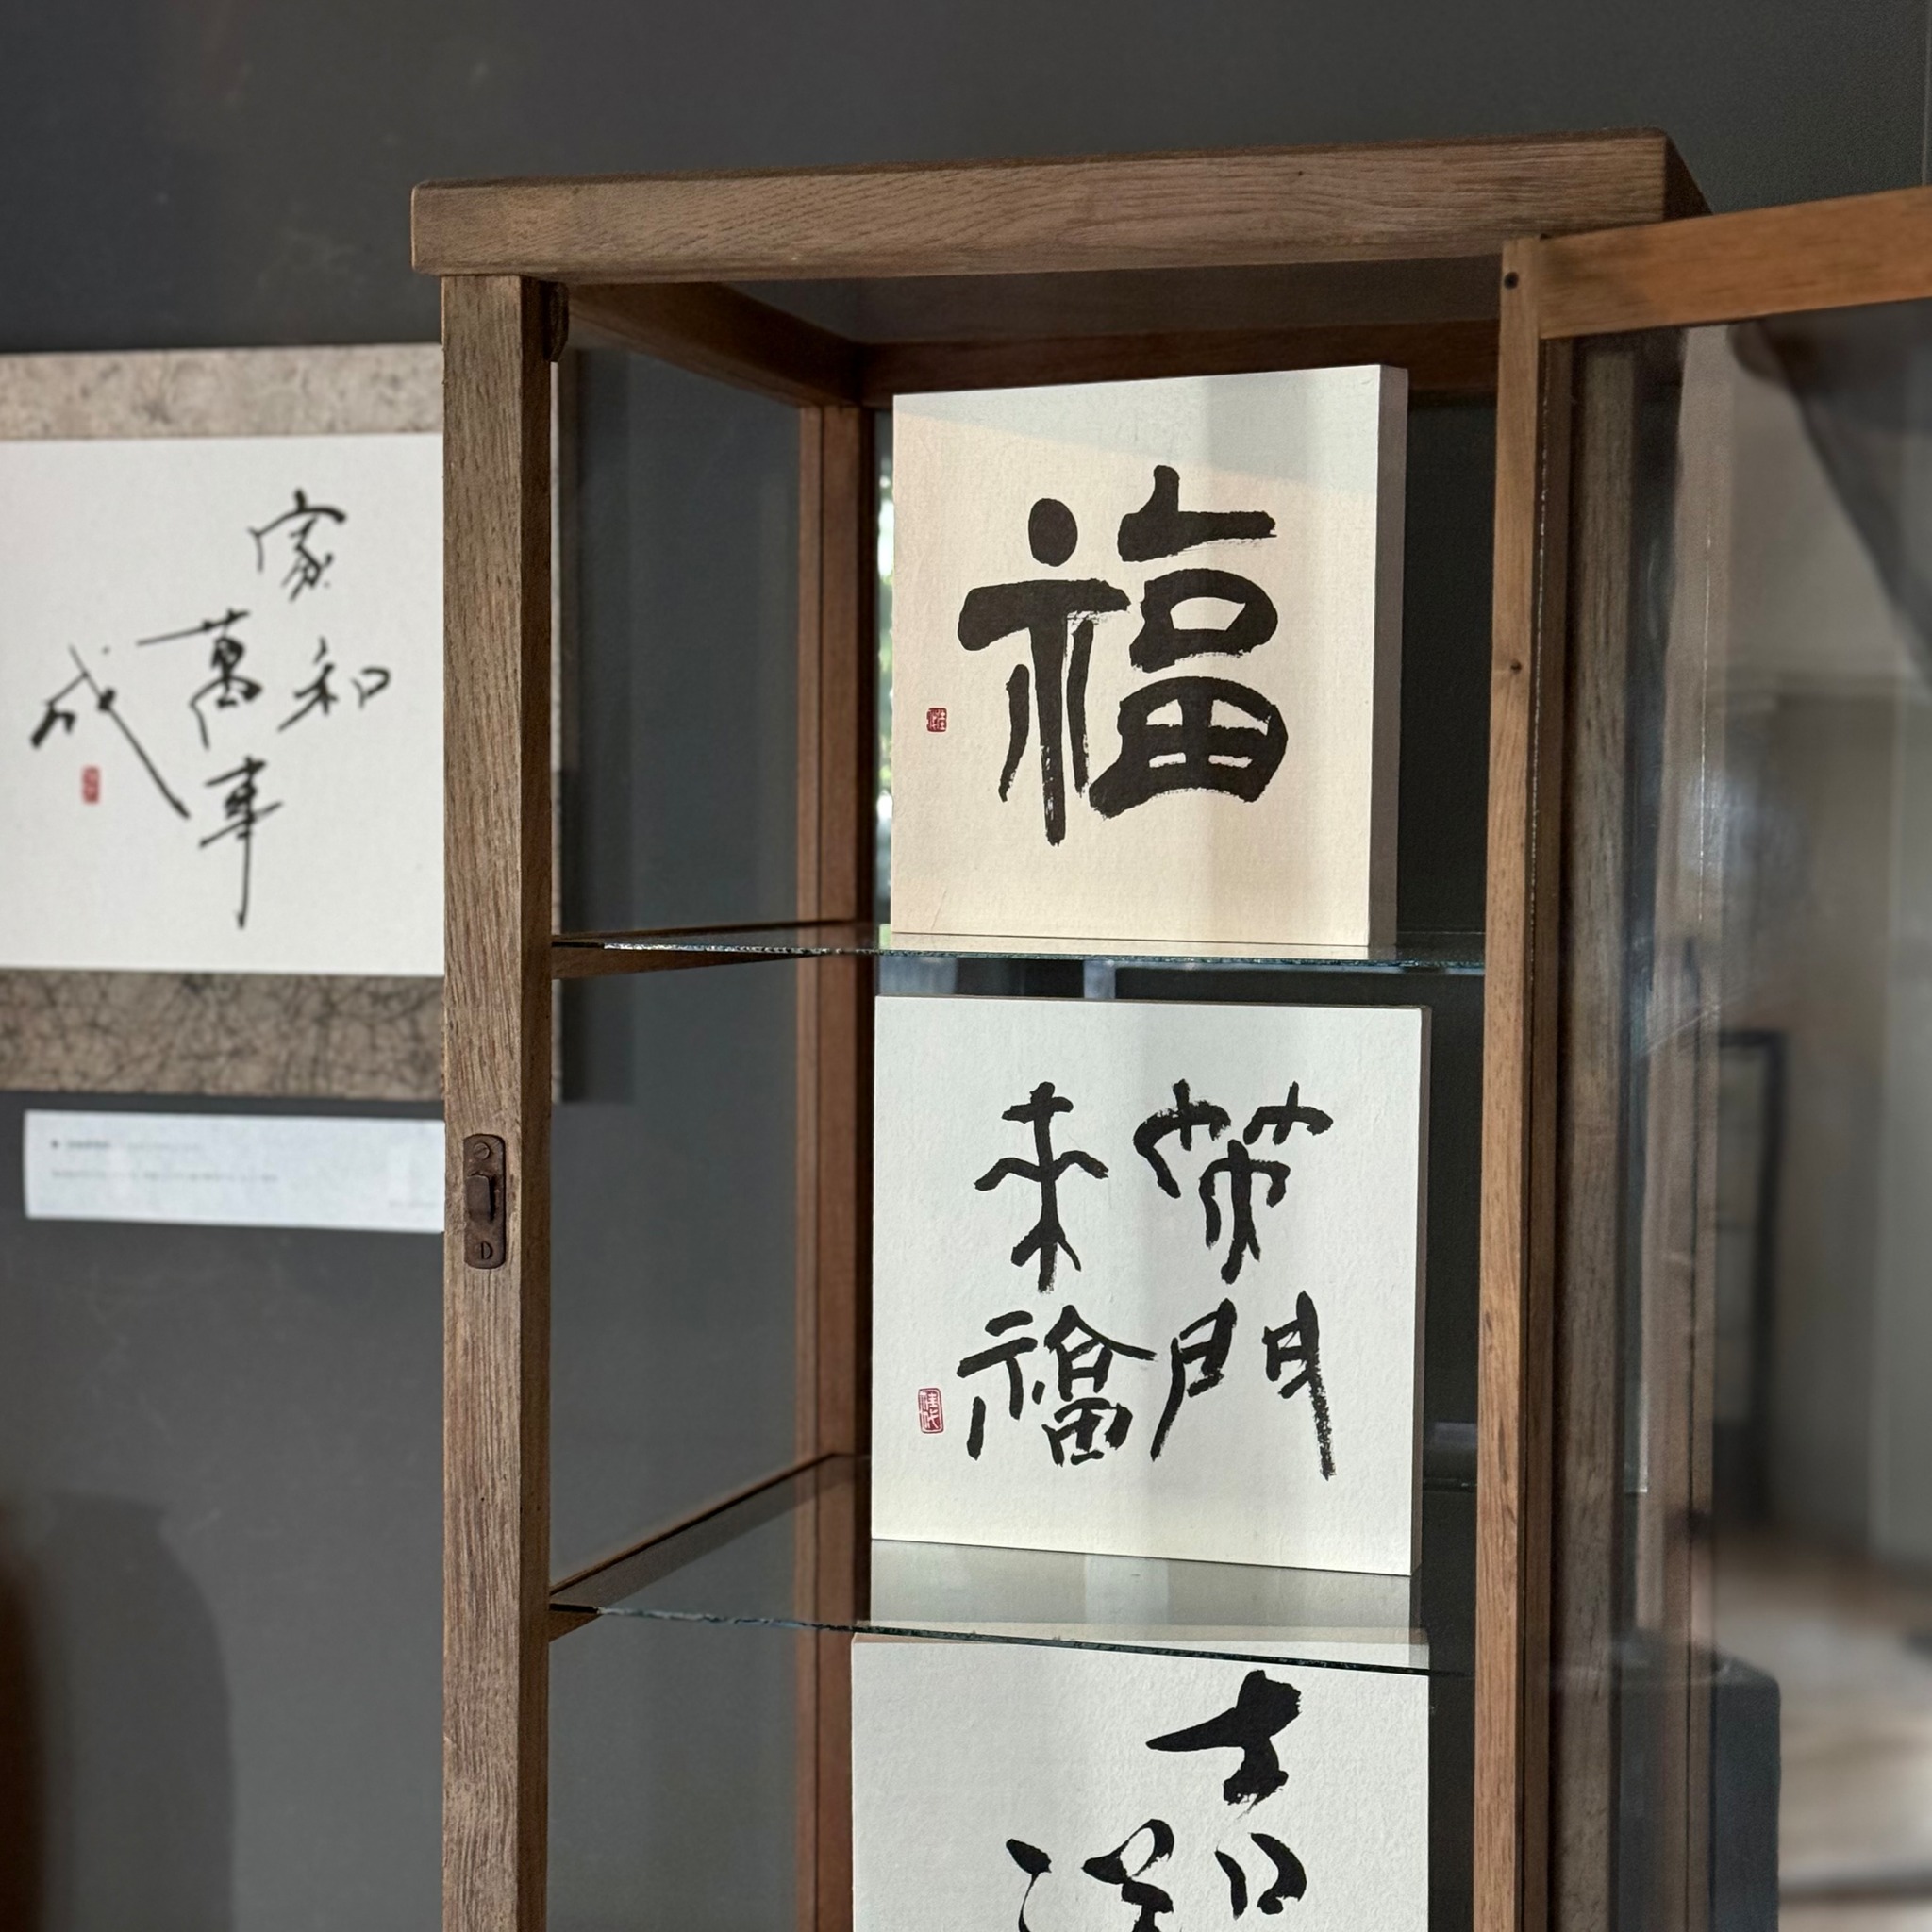 家和
萬事
成
福
笑門
來福
吉